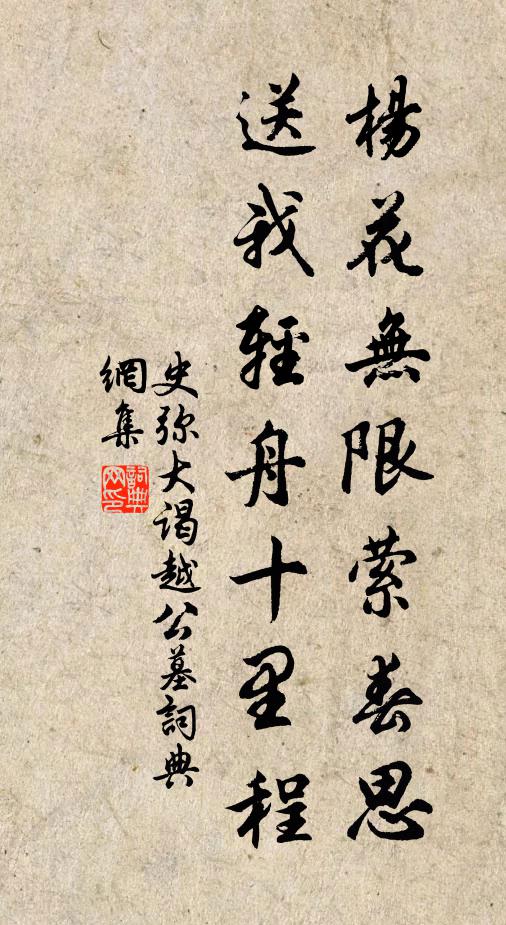 楊花無限縈春思
送我輕舟十里程
史弥大謁越公墓詞典
網集
詞典網印